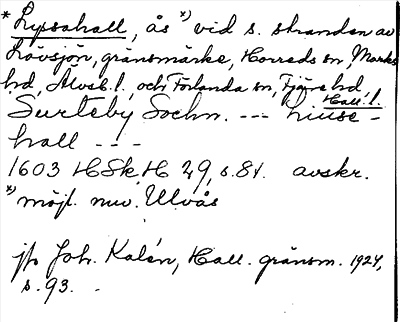 * Lysahall, ås *) vid s. stranden av
Lövsjön, gränsmärke, Horreds sn, Marks
hd, Älvsb. l. och Förlanda sn, Fjäre hd
Hall. l.
Surteby Sochn. --- Liuse-
hall ---
1603 HSkH 29, s. 81. avskr.
*) möjl. nuv. Ulvås
jfr Joh. Kalén, Hall. gränsm. 1924,
s. 93.